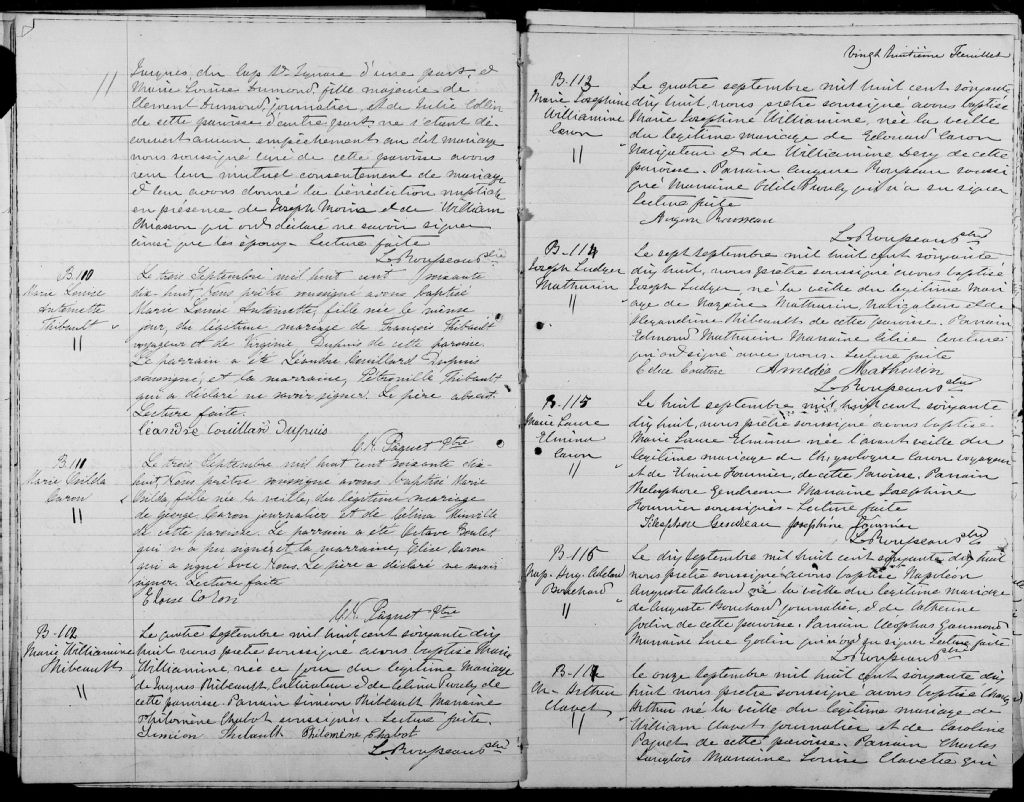 Jacques du Cap St-Ignace d'une part, et
Marie Louise Dumond, fille majeure de
Clement Dumond, journalier, et de Julie Collin
de cette paroisse d'autre part ne s'étant dé-
couvert aucun empêchement au dit mariage
nous soussigné curé de cette paroisse avons
reçu leur mutuel consentement de mariage
et leur avons donné la bénédiction nuptiale
en présence de Joseph Morin et de William
Chiasson qui ont déclaré ne savoir signer
ainsi que les époux - Lecture faite
L. Rousseau ptre
B. 110
Marie Louise
Antoinette
Thibault
Le trois Septembre mil huit cent soixante
dix-huit, Nous prêtre soussigné avons baptisé
Marie Louise Antoinette, fille née le même
jour, du légitime mariage de François Thibault
voyageur et de Virginie Dupuis de cette paroisse.
Le parrain a été Léandre Couillard Dupuis
soussigné, et la marraine, Pétronille Thibault
qui a déclaré ne savoir signer. Le père absent.
Lecture faite.
Léandre Couillard Dupuis
Paquet Ptre
B. 111
Marie
Caron
Le trois Septembre mil huit cent soixante dix-
huit, Nous prêtre soussigné avons baptisé Marie
fille née la veille, du légitime mariage
de George Caron journalier et de Célina
de cette paroisse. Le parrain a été Octave Boulet
qui n'a pu signer et la marraine, Elise Caron
qui a signé avec Nous. Le père a déclaré ne savoir
signer. Lecture faite
Caron
Paquet Ptre
B-112
Marie Williamine
Thibeault
Le quatre septembre mil huit cent soixante dix
huit nous prêtre soussigné avons baptisé Marie
Williamine, née ce jour du légitime mariage
de Jacques Thibeault, Cultivateur et de Celina Prouly de
cette paroisse. Parrain Simeon Thibeault Marraine
Philomine Chabot soussignés. Lecture faite.
Siméon Thibault Philomène Chabot
L. Rousseau ptre
Vingt huitième Feuillet
B-113
Marie Josephine
Williamine
Caron
Le quatre septembre mil huit cent soixante
dix huit, nous prêtre soussigné avons baptisé
Marie Josephine Williamine, née la veille
du légitime mariage de Edouard Caron
Navigateur et de Williamine Dery de cette
paroisse. Parrain Rousseau soussi
gné Marraine Odile Prouly qui n'a su signer
Lecture faite
Rousseau
L. Rousseau ptre
B-114
Joseph Ludger
Mathurin
Le sept septembre mil huit cent soixante
dix huit, nous prêtre soussigné avons baptisé
Joseph Ludger, né la veille du légitime mari
age de Nazaire Mathurin, navigateur et de
Alexandrine Thibeault de cette paroisse. Parrain
Edmond Mathurin Marraine Couture
qui ont signé avec nous. Lecture faite
Couture Amédée Mathurin
L. Rousseau ptre
B-115
Marie Laure
Elmina
Caron
Le huit septembre mil huit cent soixante
dix huit, nous prêtre soussigné avons baptisé
Marie Laure Elmina née l'avant veille du
légitime mariage de Chrysologue Caron voyageur
et de Fournier, de cette paroisse. Parrain
Thelesphore Gendreau Marraine Josephine
Fournier soussignés - Lecture faite
Gendreau Josephine Fournier
L. Rousseau ptre
B-116
Nap- Aug. Adelard
Bouchard
Le dix septembre mil huit cent soixante dix huit
nous prêtre soussigné avons baptisé Napoleon
Auguste Adelard né la veille du légitime mariage
de Auguste Bouchard journalier, et de Catherine
Godin de cette paroisse. Parrain Cleophas Gaumond
Marraine Luce Godin qui n'ont su signer Lecture faite
L. Rousseau ptre
B-117
Ch- Arthur
Clavet
Le onze septembre mil huit cent soixante dix
huit nous prêtre soussigné avons baptisé Charles
Arthur né la veille du légitime mariage de
William Clavet journalier et de Caroline
Paquet de cette paroisse. Parrain Charles
Langlois Marraine Louise Clavette qui